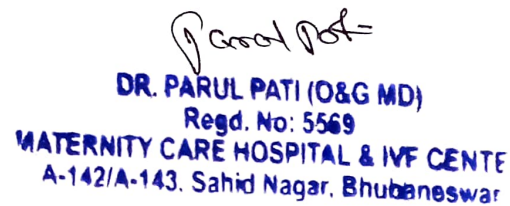 Parul Pati
DR. PARUL PATI (O&G MD)
Regd. No: 5569
MATERNITY CARE HOSPITAL & IVF CENTE
A-142/A-143, Sahid Nagar, Bhubaneswar